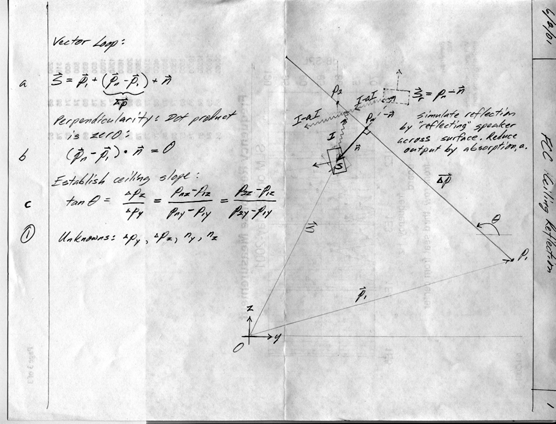 Vector Loop:
a
S⃗ = p⃗₁ + (p⃗ₙ - p⃗₁) + n⃗
Δp⃗
Perpendicularity: Dot product
is zero:
b
(p⃗ₙ - p⃗₁) • n⃗ = 0
Establish ceiling slope:
c
tan θ = Δp_z / Δp_y = (p_nz - p_1z) / (p_ny - p_1y) = (p_2z - p_1z) / (p_2y - p_1y)
① Unknowns: Δp_y, Δp_z, n_y, n_z
P₂
I-aI
I-aI
I
Pₙ
-n⃗
n⃗
S
S⃗ᵣ = p⃗ₙ - n⃗
simulate reflection
by "reflecting" speaker
across surface. Reduce
output by absorption, a.
Δp⃗
θ
P₁
S⃗
p⃗₁
z
y
O
Ceiling Reflection
1